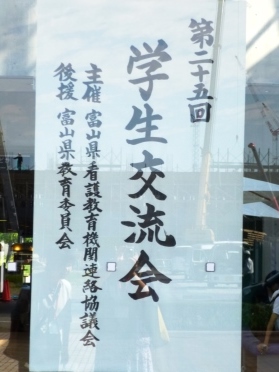 第二十五回
学生交流会
主催 富山県看護教育機関連絡協議会
後援 富山県教育委員会